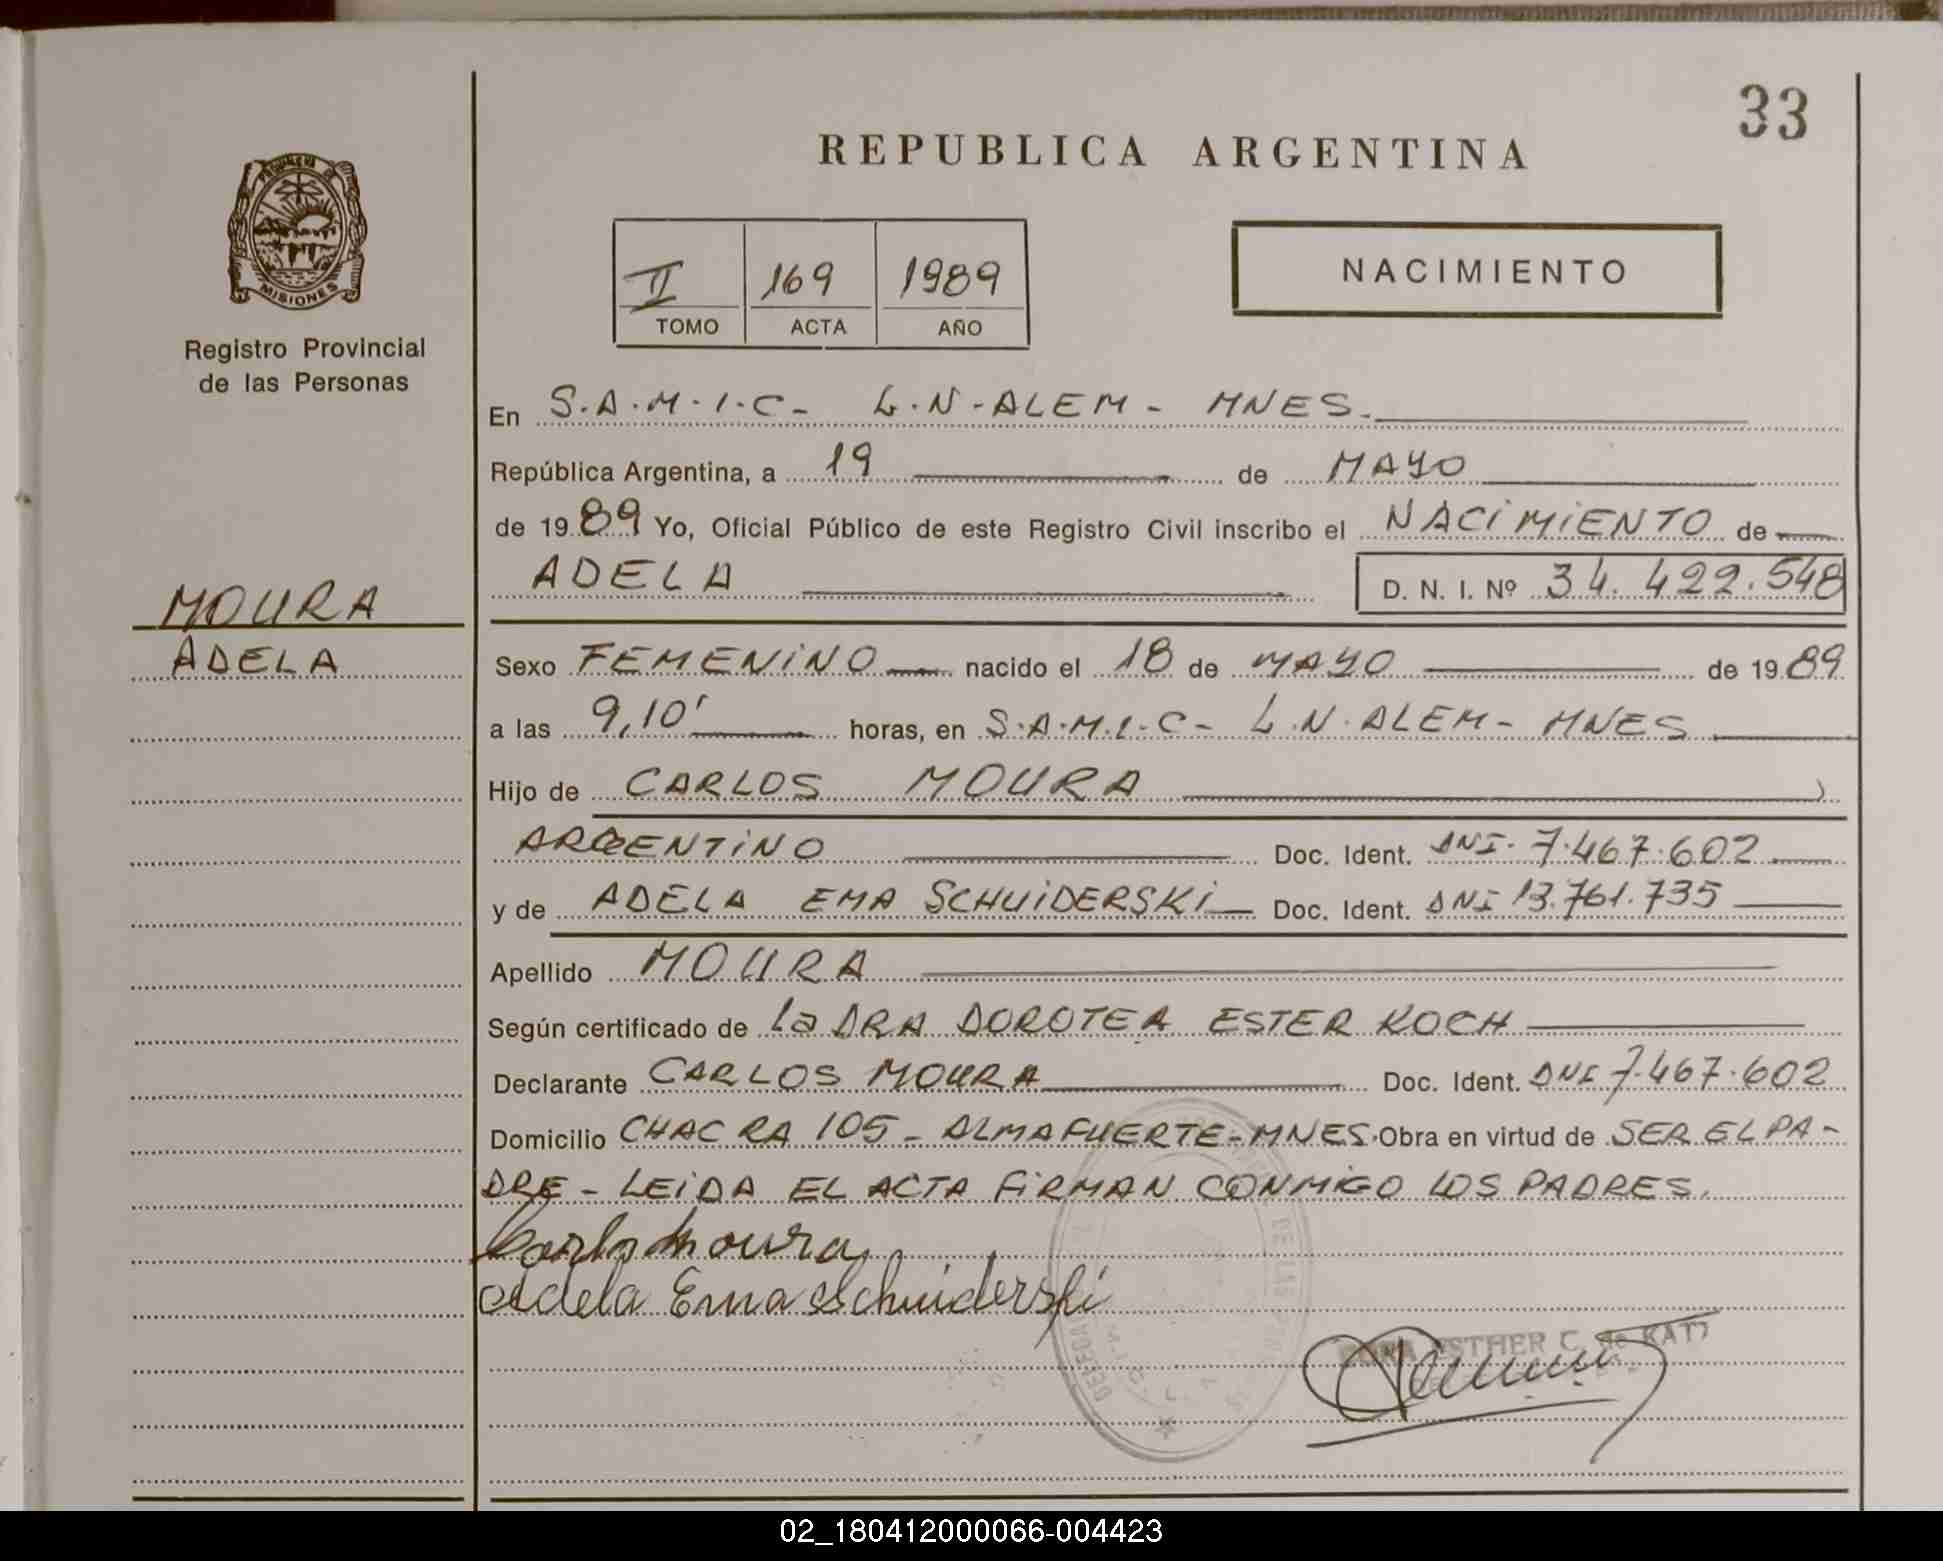 33
REPUBLICA ARGENTINA
PROVINCIA DE
MISIONES
Registro Provincial
de las Personas
II 169 1989
TOMO ACTA AÑO
NACIMIENTO
En S.A.M.I.C- L.N-ALEM- MNES.
República Argentina, a 19 de MAYO
de 1989 Yo, Oficial Público de este Registro Civil inscribo el NACIMIENTO de
ADELA D. N. I. Nº 34.422.548
MOURA
ADELA
Sexo FEMENINO nacido el 18 de MAYO de 1989
a las 9,10' horas, en S.A.M.I.C- L.N.ALEM- MNES
Hijo de CARLOS MOURA
ARGENTINO Doc. Ident. DNI. 7.467.602
y de ADELA EMA SCHUIDERSKI Doc. Ident. DNI 13.761.735
Apellido MOURA
Según certificado de La DRA DOROTEA ESTER KOCH
Declarante CARLOS MOURA Doc. Ident. DNI 7.467.602
Domicilio CHACRA 105- ALMAFUERTE-MNES. Obra en virtud de SER EL PA-
DRE - LEIDA EL ACTA FIRMAN CONMIGO LOS PADRES.
Carlos Moura
Adela Ema Schuiderski
ESTHER C. de
02_180412000066-004423